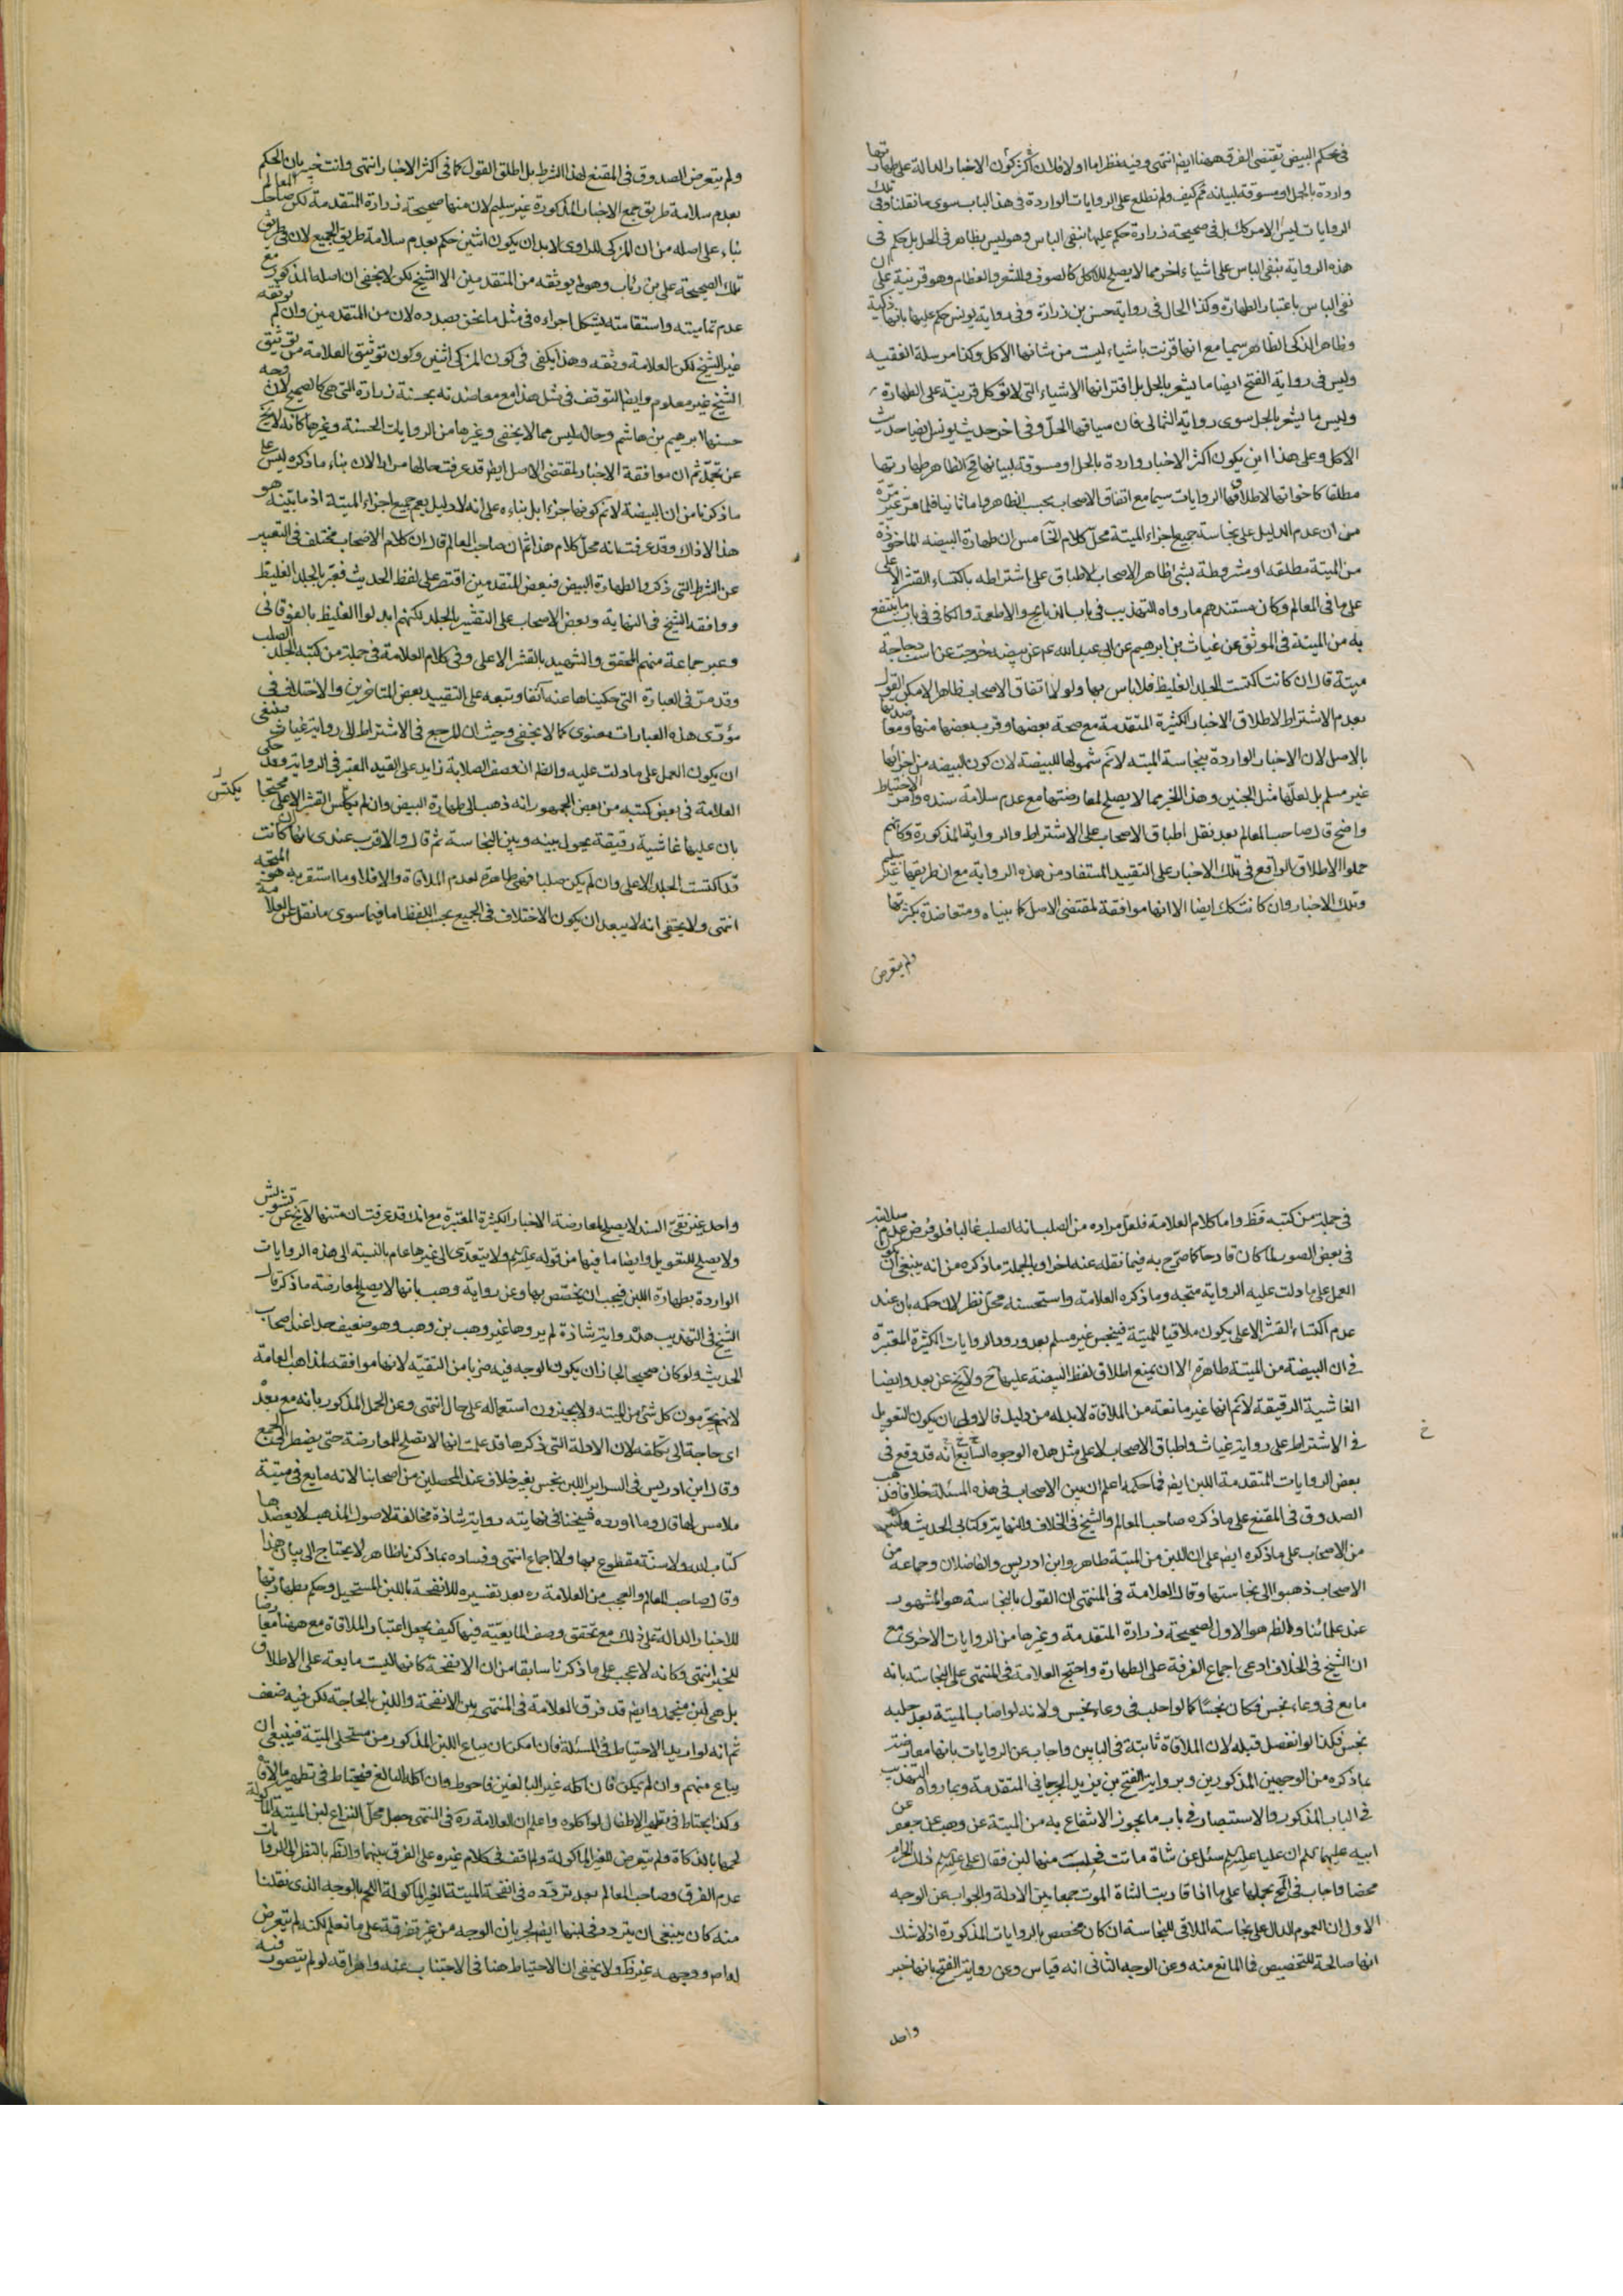 في حكم البيض يقتضى الفرق هيهنا ايضا انتهى وفيه نظر اما اولا فلان اكثر كون الاخبار الدالة على طهارتها
واردة بالحل او مسوقة لبيانه ثم كيف ولم نطلع على الروايات الواردة في هذا الباب سوى ما نقلنا وفي تلك
الروايات ليس الامر كك بل في صحيحة زرارة حكم عليها بنفى الباس وهو ليس بظاهر في الحل بل حكم في
هذه الرواية بنفى الباس على اشياء اخر مما لا يصلح للاكل كالصوف والشعر والعظام وهو قرينة على ان
نفى الباس باعتبار الطهارة وكذا الحال في رواية حسن بن زرارة وفي رواية يونس حكم عليها بانها ذكية
وظاهر الذكى الطاهر سيما مع انها قرنت باشياء ليست من شانها الاكل وكذا مرسلة الفقيه
وليس في رواية الفتح ايضا ما يشعر بالحل بل اقترانها الاشياء التى لا تؤكل قرينة على الطهارة
وليس ما يشعر بالحل سوى رواية الثمالى فان سياقها الحل وفي اخر حديث يونس ايضا حديث
الاكل وعلى هذا اين يكون اكثر الاخبار واردة بالحل او مسوقة لبيانها فح الظاهر طهارتها
مطلقا كاخواتها لاطلاق الروايات سيما مع اتفاق الاصحاب بحسب الظاهر واما ثانيا فلما مر غير مرة
من ان عدم الدليل على نجاسة جميع اجزاء الميتة محل كلام الخامس ان طهارة البيضه الماخوذة
من الميتة مطلقه او مشروطة بشئ ظاهر الاصحاب الاطباق على اشتراطه باكتساء القشر الاعلى
على ما في المعالم وكان مستندهم ما رواه التهذيب في باب الذبايح والاطعمة والكافى في باب ما ينتفع
به من الميتة في الموثق عن غياث بن ابرهيم عن ابى عبد الله ع عن بيضه خرجت عن است دجاجة
ميتة قال ان كانت اكتست الجلد الغليظ فلا باس بها ولولا اتفاق الاصحاب ظاهرا لامكن القول
بعدم الاشتراط لاطلاق الاخبار الكثيرة المتقدمة مع صحة بعضها وقرب بعضها منها ومعاضدتها
بالاصل لان الاخبار الواردة بنجاسة الميته لا نم شمولها للبيضة لان كون البيضه من اجزائها
غير مسلم بل لعلها مثل الجنين وهذا الخبر مما لا يصلح لمعارضتها مع عدم سلامة سنده وامر الاحتياط
واضح قال صاحب المعالم بعد نقل اطباق الاصحاب على الاشتراط والرواية المذكورة وكانهم
حملوا الاطلاق الواقع في تلك الاخبار على التقييد المستفاد من هذه الرواية مع ان طريقها غير سليم
وتلك الاخبار وان كانت كك ايضا الا انها موافقة لمقتضى الاصل كما بيناه ومتعاضدة بكثرتها
ولم يتعرض
ولم يتعرض الصدوق في المقنع لهذا الشرط بل اطلق القول كما في اكثر الاخبار انتهى وانت خبير بان الحكم
بعدم سلامة طريق جميع الاخبار المذكورة غير سليم لان منها صحيحة زرارة المتقدمة لكن صاحب المعالم
بناء على اصله من ان المزكى للراوى لابد ان يكون اثنين حكم بعدم سلامة طريق الجميع لان في طريق
تلك الصحيحة على بن رئاب وهو لم يوثقه من المتقدمين الا الشيخ لكن لا يخفى ان اصله المذكور مع
عدم تماميته واستقامته يشكل اجراءه في مثل ما نحن بصدده لان من المتقدمين وان لم يوثقه
غير الشيخ لكن العلامة وثقه وهذا يكفى في كون المزكى اثنين وكون توثيق العلامة من توثيق
الشيخ غير معلوم وايضا التوقف في مثل هذا مع معاضدته بحسنة زرارة التى هى كالصحيح لان وجه
حسنها ابرهيم بن هاشم وحاله ليس مما لا يخفى وغيرها من الروايات الحسنة وغيرها كانه لا يخ
عن تحمل ثم ان موافقة الاخبار لمقتضى الاصل ايضا قد عرفت حالها مرارا لان بناء ما ذكره ليس على
ما ذكرنا من ان البيضة لا نم كونها جزءا بل بناءه على انه لا دليل يعم جميع اجزاء الميتة اذ ما بينه هو
هذا لا ذاك وقد عرفت انه محل كلام هذا ثم ان صاحب المعالم قال ان كلام الاصحاب مختلف في التعبير
عن الشرط التى ذكروا لطهارة البيض فبعض المتقدمين اقتصر على لفظ الحديث فعبر بالجلد الغليظ
ووافقه الشيخ في النهاية وبعض الاصحاب على التقشير بالجلد لكنهم ابدلوا الغليظ بالفوقانى
وعبر جماعة منهم المحقق والشهيد بالقشر الاعلى وفي كلام العلامة في جملة من كتبه الجلد الصلب
وقد مر في العبارة التى حكيناها عنه آنفا وتبعه على التقييد بعض المتاخرين والاختلاف في
مؤدى هذه العبارات معنوى كما لا يخفى وحيث ان المرجع في الاشتراط الى رواية غياث فينبغى
ان يكون العمل على ما دلت عليه والظ ان وصف الصلابة زايد على القيد المعتبر في الرواية وقد حكى
العلامة في بعض كتبه من بعض الجمهور انه ذهب الى طهارة البيض وان لم يكتس القشر الاعلى محتجا
يكتس
بان عليها غاشية رقيقة تحول بينه وبين النجاسة ثم قال والاقرب عندى انها ان كانت
قد اكتست الجلد الاعلى وان لم يكن صلبا فهى طاهرة لعدم الملاقاة والا فلا وما استقربه هو المتجه
انتهى ولا يخفى انه لا يبعد ان يكون الاختلاف في الجميع بحسب اللفظ اما فيما سوى ما نقل عن العلامة
في جملة من كتبه فظ واما كلام العلامة فلعل مراده من الصلب انه الصلب غالبا فلو فرض عدم صلابته
في بعض الصور لما كان قادحا كما صرح به فيما نقله عنه اخرا وبالجملة ما ذكره من انه ينبغى ان يكون
العمل على ما دلت عليه الرواية متجه وما ذكره العلامة واستحسنه محل نظر لان حكمه بان عند
عدم اكتساء القشر الاعلى يكون ملاقيا للميتة فينجس غير مسلم بعد ورود الروايات الكثيرة المعتبرة
في ان البيضة من الميتة طاهرة الا ان يمنع اطلاق لفظ البيضة عليها ح ولا يخ عن بعد وايضا
الغاشية الرقيقة لا نم انها غير مانعة من الملاقاة لابد له من دليل فالاولى ان يكون التعويل
في الاشتراط على رواية غياث واطباق الاصحاب لا على مثل هذه الوجوه السابع انه قد وقع في
خ
بعض الروايات المتقدمة اللبن ايضا فما حكمه اعلم ان بين الاصحاب في هذه المسئلة خلافا فذهب
الصدوق في المقنع على ما ذكره صاحب المعالم والشيخ في الخلاف والنهاية وكتابى الحديث وكثير
من الاصحاب على ما ذكره ايضا على ان اللبن من الميتة طاهر وابن ادريس والفاضلان وجماعة من
الاصحاب ذهبوا الى نجاستها وقال العلامة في المنتهى ان القول بالنجاسة هو المشهور
عند علمائنا والظ هو الاول لصحيحة زرارة المتقدمة وغيرها من الروايات الاخرى مع
ان الشيخ في الخلاف ادعى اجماع الفرقة على الطهارة واحتج العلامة في المنتهى على النجاسة بانه
مايع في وعاء نجس فكان نجسا كما لو احلب في وعاء نجس ولانه لو اصاب الميتة بعد حلبه
نجس فكذا لو انفصل قبله لان الملاقاة ثابتة في البابين واجاب عن الروايات بانها معارضة
بما ذكره من الوجهين المذكورين وبرواية الفتح بن يزيد الجرجانى المتقدمة وبما رواه التهذيب
في الباب المذكور والاستبصار في باب ما يجوز الانتفاع به من الميتة عن وهب عن جعفر عن
ابيه عليهما السلم ان عليا عليه السلم سئل عن شاة ماتت فحلبت منها لبن فقال على عليه السلم ذلك الحرام
محضا واجاب في الج بحملها على ما اذا قاربت الشاة الموت جمعا بين الادلة والجواب عن الوجه
الاول ان العموم الدال على نجاسة الملاقى للنجاسة ان كان مخصص بالروايات المذكورة اذ لا شك
انها صالحة للتخصيص فما المانع منه وعن الوجه الثانى انه قياس وعن رواية الفتح بانها خبر
واحد
واحد غير نقى السند لا يصلح لمعارضة الاخبار الكثيرة المعتبرة مع انك قد عرفت ان متنها لا يخ عن تشويش
ولا يصلح للتعويل وايضا ما فيها من قوله عليه السلم ولا يتعدى الى غيرها عام بالنسبة الى هذه الروايات
الواردة بطهارة اللبن فيجب ان يخصص بها وعن رواية وهب بانها لا يصلح لمعارضة ما ذكر قال
الشيخ في التهذيب هذه رواية شاذة لم يروها غير وهب بن وهب وهو ضعيف جدا عند اصحاب
الحديث ولو كان صحيحا لجاز ان يكون الوجه فيه ضربا من التقيه لانها موافقه لمذاهب العامة
لانهم يحرمون كل شئ من الميته ولا يجيزون استعماله على حال انتهى وعن الحمل المذكور بانه مع بعده
اى حاجة الى تكلفه لان الادلة التى ذكرها قد علمت انها لا تصلح للمعارضة حتى يضطر الى الجمع
وقال ابن ادريس في السراير اللبن نجس بغير خلاف عند المحصلين من اصحابنا لانه مايع في ميتة
ملامس لها قال وما اورده شيخنا في نهايته رواية شاذة مخالفة لاصول المذهب لا يعضدها
كتاب الله ولا سنة مقطوع بها ولا اجماع انتهى وفساده بما ذكرنا ظاهر لا يحتاج الى بيان هذا
وقال صاحب المعالم والعجب من العلامة ره بعد تفسيره للانفحة باللبن المستحيل وحكم بطهارتها
للاخبار الدالة على ذلك مع تحقق وصف المايعية فيها كيف يجعل اعتبار الملاقاة هيهنا معارضا
للخبر انتهى وكانه لا عجب على ما ذكرنا سابقا من ان الانفحة كانها ليست مايعة على الاطلاق
بل هى لبن منجمد وايضا قد فرق العلامة في المنتهى بين الانفحة واللبن بالحاجة لكن فيه ضعف
ثم انه لو اريد الاحتياط في المسئلة فان امكن ان يباع اللبن المذكور من مستحلى الميتة فينبغى ان
يباع منهم وان لم يمكن فان اكله غير البالغين فاحوط وان اكله البالغ فيحتاط في تطهير ما لاقاه
وكذا يحتاط في تطهير الاطفال لو اكلوه واعلم ان العلامة ره في المنتهى جعل محل النزاع لبن الميتة الماكولة
لحمها بالذكاة ولم يتعرض للغير الماكولة ولم اقف في كلام غيره على الفرق بينهما والظ بالنظر الى الروايات
عدم الفرق وصاحب المعالم بعد تردده في انفحة الميتة الغير الماكولة اللحم بالوجه الذى نقلنا
منه كان ينبغى ان يتردد في لبنها ايضا لجريان الوجه من غير تفرقة على ما نعلم لكنه لم يتعرض
له اص ووجهه غير ظ ولا يخفى ان الاحتياط هنا في الاجتناب عنه واهراقه لو لم يتصور فيه